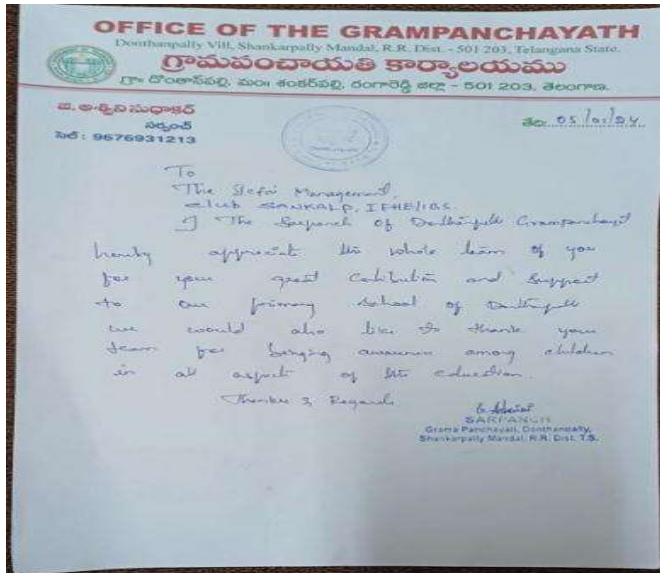 OFFICE OF THE GRAMPANCHAYATH
Donthanpally Vill, Shankarpally Mandal, R.R. Dist. - 501 203, Telangana State.
గ్రామపంచాయతి కార్యాలయము
గ్రా॥ దొంతాన్‌పల్లి, మం॥ శంకర్‌పల్లి, రంగారెడ్డి జిల్లా - 501 203, తెలంగాణ.
అశ్విని సుధాకర్
సర్పంచ్
సెల్ : 9676931213
తేది: 05/01/24
To
The Icfai Management,
Club SANKALP, IFHE/IBS.
I The Sarpanch of Grampanchayat
hereby appreciate the whole team of you
for your great and Support
to our primary School of
we would also like to thank your
team for among children
in all aspect of the education.
Thanks & Regards
SARPANCH
Grama Panchayati, Donthanpally,
Shankarpally Mandal, R.R. Dist. T.S.